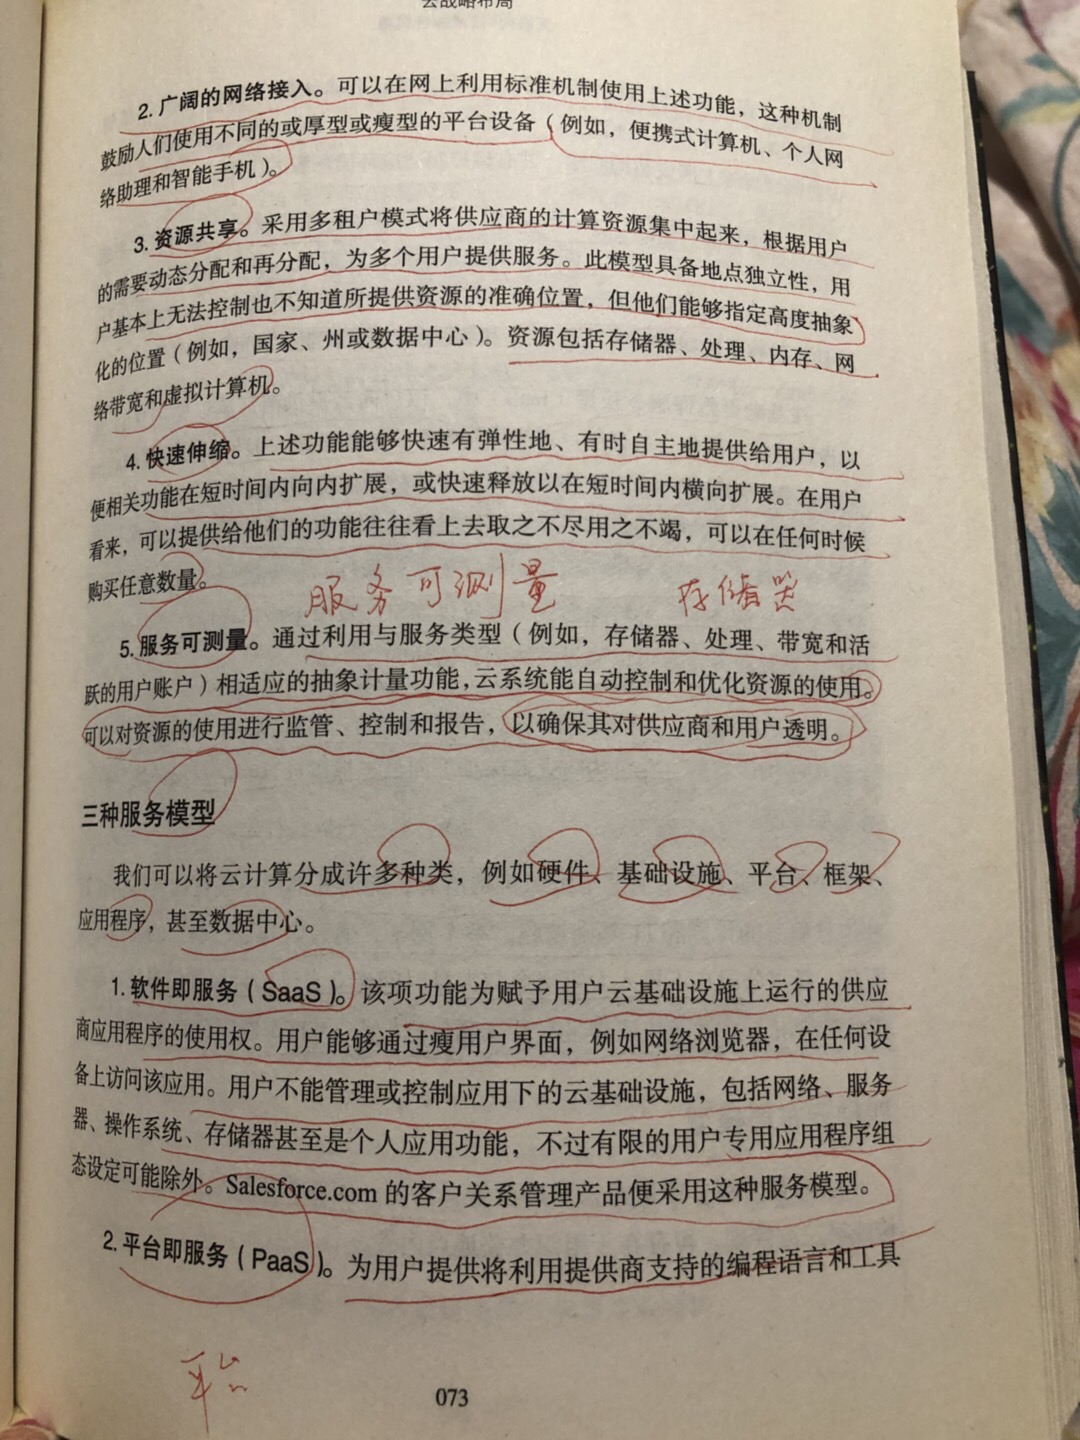 云战略布局
2. 广阔的网络接入。可以在网上利用标准机制使用上述功能，这种机制
鼓励人们使用不同的或厚型或瘦型的平台设备（例如，便携式计算机、个人网
络助理和智能手机）。
3. 资源共享。采用多租户模式将供应商的计算资源集中起来，根据用户
的需要动态分配和再分配，为多个用户提供服务。此模型具备地点独立性，用
户基本上无法控制也不知道所提供资源的准确位置，但他们能够指定高度抽象
化的位置（例如，国家、州或数据中心）。资源包括存储器、处理、内存、网
络带宽和虚拟计算机。
4. 快速伸缩。上述功能能够快速有弹性地、有时自主地提供给用户，以
便相关功能在短时间内向内扩展，或快速释放以在短时间内横向扩展。在用户
看来，可以提供给他们的功能往往看上去取之不尽用之不竭，可以在任何时候
购买任意数量。
服务可测量 存储器
5. 服务可测量。通过利用与服务类型（例如，存储器、处理、带宽和活
跃的用户账户）相适应的抽象计量功能，云系统能自动控制和优化资源的使用。
可以对资源的使用进行监管、控制和报告，以确保其对供应商和用户透明。
三种服务模型
我们可以将云计算分成许多种类，例如硬件、基础设施、平台、框架、
应用程序，甚至数据中心。
1. 软件即服务（SaaS）。该项功能为赋予用户云基础设施上运行的供应
商应用程序的使用权。用户能够通过瘦用户界面，例如网络浏览器，在任何设
备上访问该应用。用户不能管理或控制应用下的云基础设施，包括网络、服务
器、操作系统、存储器甚至是个人应用功能，不过有限的用户专用应用程序组
态设定可能除外。Salesforce.com 的客户关系管理产品便采用这种服务模型。
2. 平台即服务（PaaS）。为用户提供将利用提供商支持的编程语言和工具
平台
073